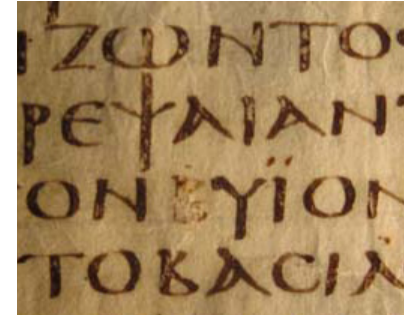 ΖΩΝΤΟ
ΡΕΨΑΙΑΝ
ΟΝ ΥΪΟΝ
ΤΟΒΑϹΙΛ